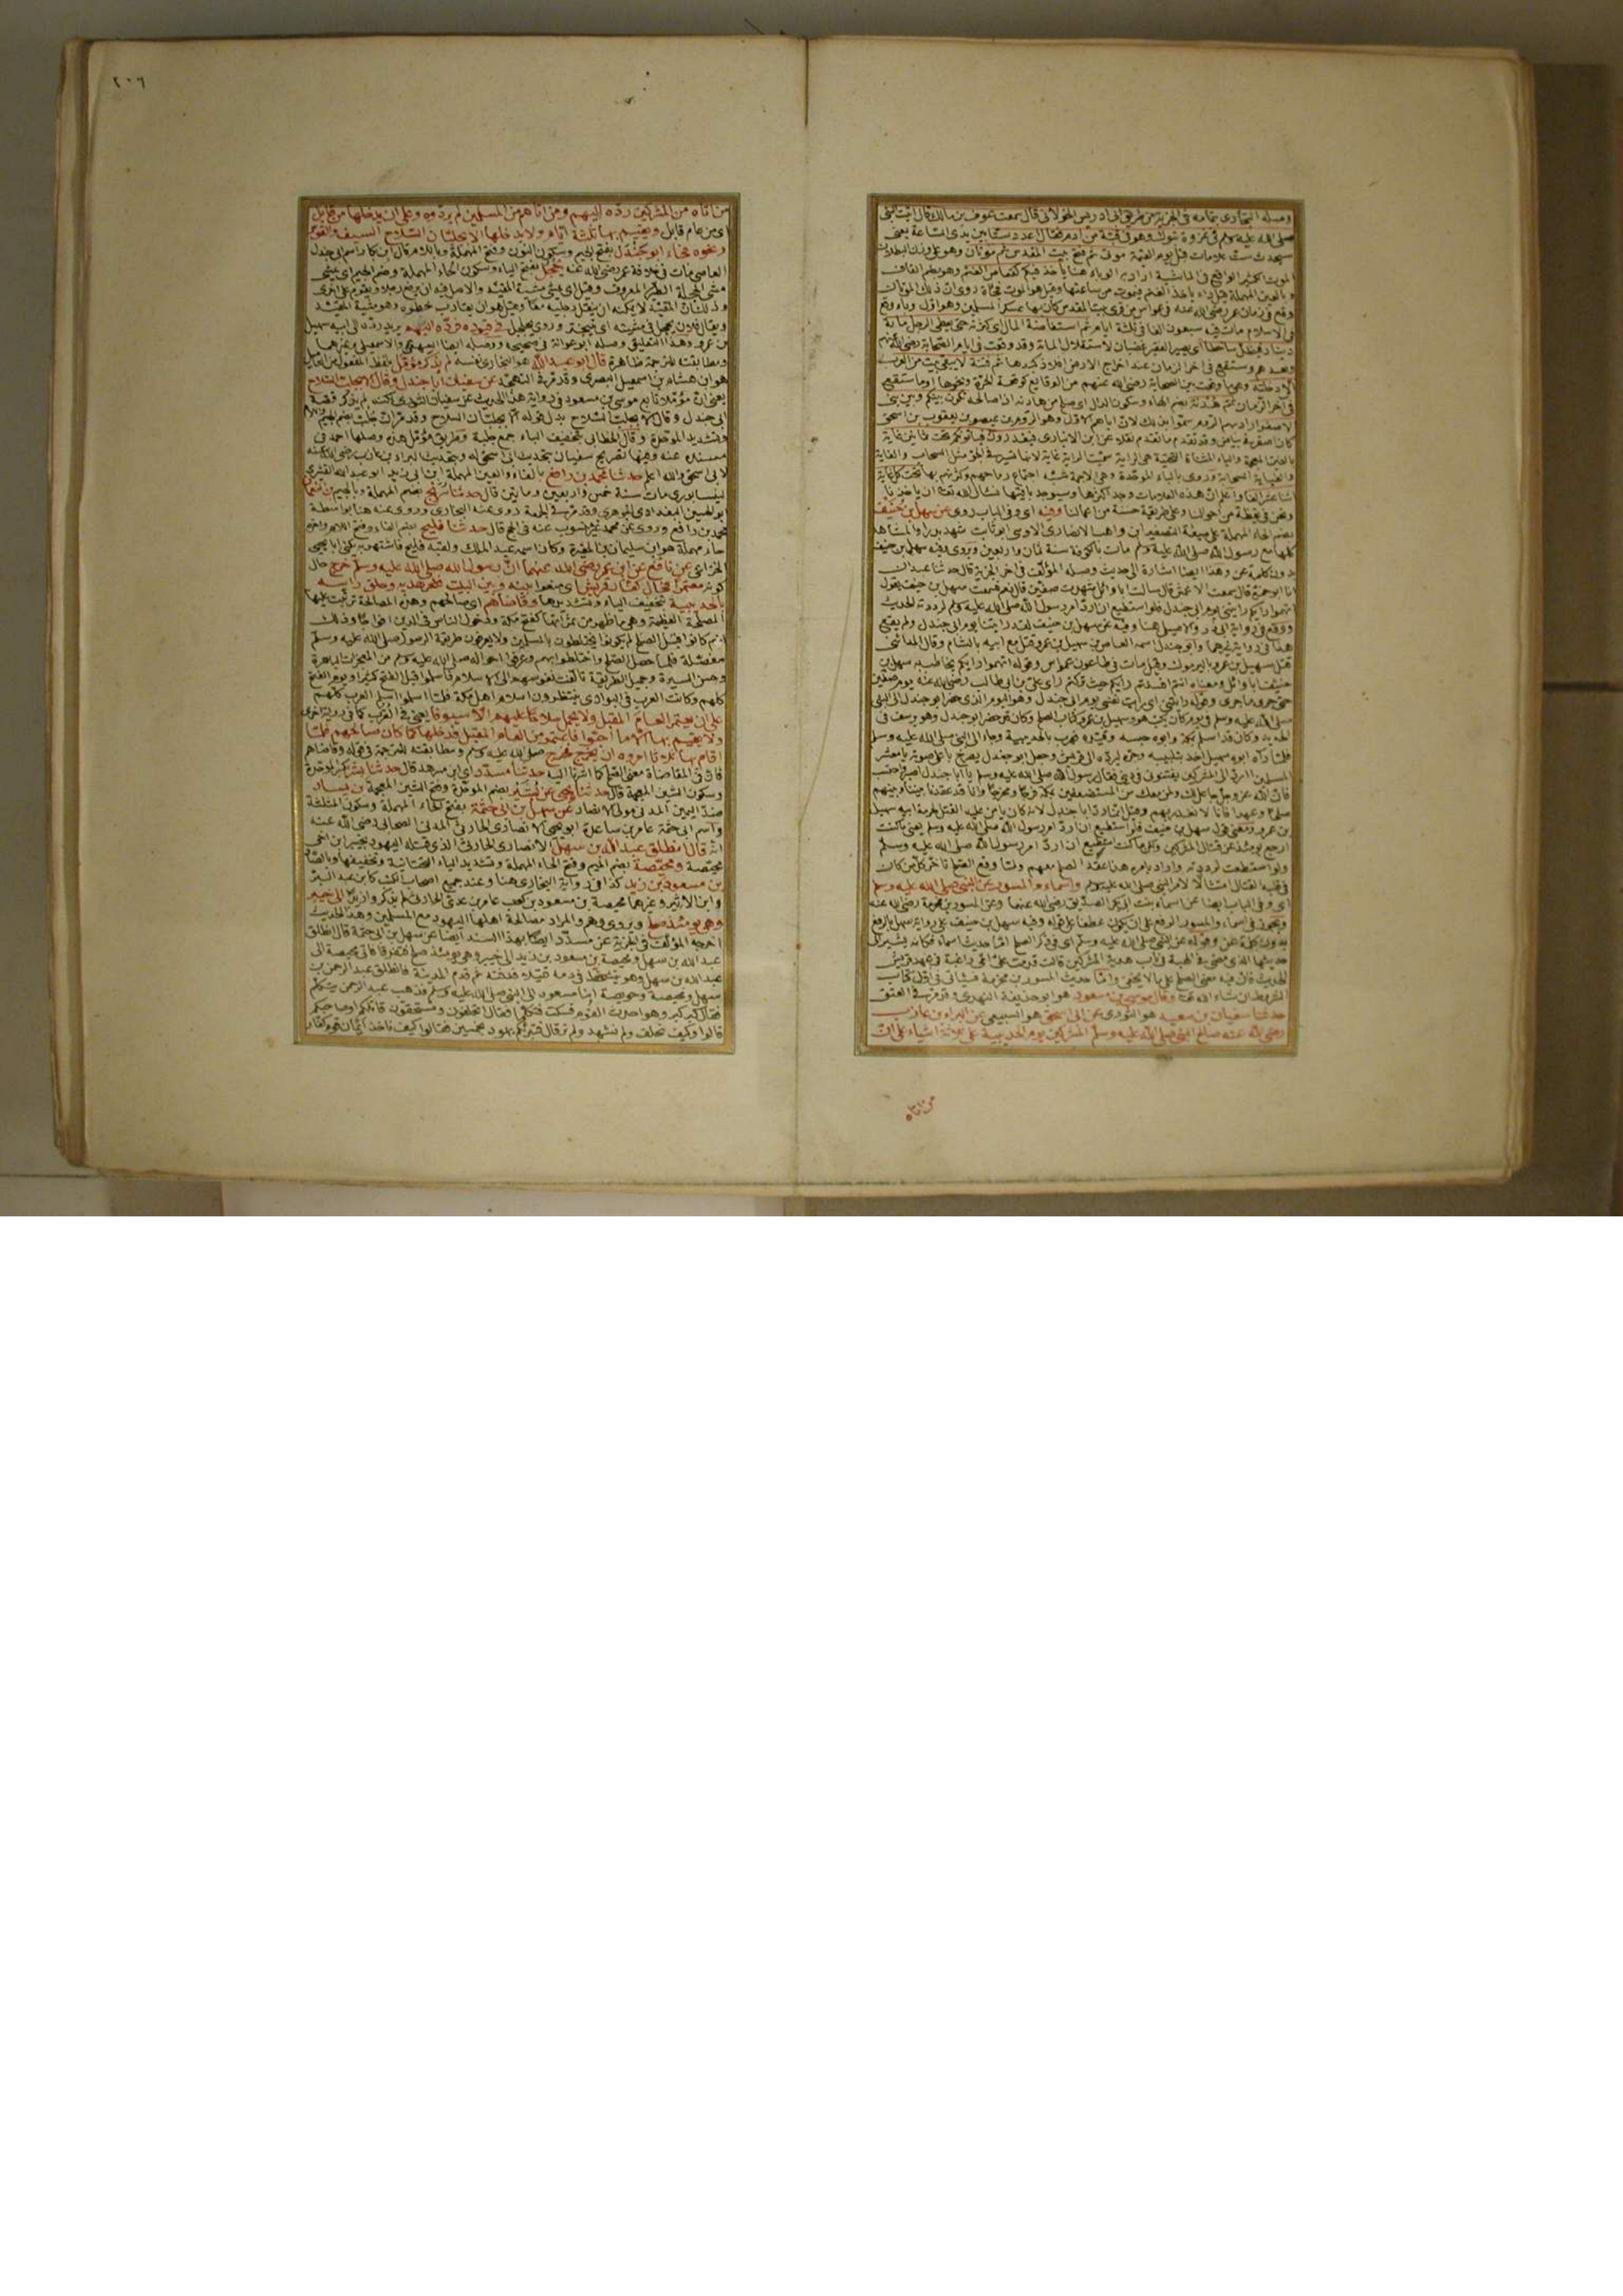 وصله البخاري بتمامه في الجزية من طريق ابي ادريس الخولاني قال سمعت عوف بن مالك قال اتيت النبي
صلى الله عليه وسلم في غزوة تبوك وهو في قبة من ادم فقال اعدد ستا بين يدي الساعة يعني
ستحدث ست علامات قبل يوم القيمة موتي ثم فتح بيت المقدس ثم موتان وهو على وزن البطلان
الموت الكثير الواقع في الماشية اراد به الوباء هنا يأخذ فيكم كقعاص الغنم وهو بضم القاف
وقع في زمان عمر رضي الله عنه في عمواس من قرى بيت المقدس كان بها عسكر المسلمين وهو اول وباء وقع
في الاسلام مات فيه سبعون الفا في ثلثة ايام ثم استفاضة المال اي كثرته حتى يعطى الرجل مائة
دينار فيظل ساخطا اي يصير الفقير غضبان لاستقلال المائة وقد وقعت في ايام الصحابة رضي الله عنهم
في آخر الزمان ثم هدنة بضم الهاء وسكون الدال اي صلح من هادنه اذا صالحه تكون بينكم وبين بني
بالغين المعجمة والياء المثناة التحتية هي الراية سميت الراية غاية لانها تشبه في الجو مثل السحاب والغاية
ونحن في يقظة من احوالنا وعلى طريقة حسنة من اعمالنا وفيه اي وفي الباب روى عن سهل بن حنيف
بضم الحاء المهملة على صيغة التصغير ابن واهب الانصاري الاوسي ابو ثابت شهد بدرا والمشاهد
كلها مع رسول الله صلى الله عليه وسلم مات بالكوفة سنة ثمان واربعين ويروى وفيه سهل بن حنيف
بدون كلمة عن وهذا ايضا اشارة الى حديث وصله المؤلف في اخر الجزية قال حدثنا عبدان
انا ابو حمزة قال سمعت الاعمش قال سالت ابا وائل شهدت صفين قال نعم فسمعت سهل بن حنيف يقول
اتهموا رايكم رايتني يوم ابي جندل فلو استطيع ان ارد امر رسول الله صلى الله عليه وسلم لرددته الحديث
قتل سهيل بن عمرو باليرموك وقيل مات في طاعون عمواس وقوله اتهموا رايكم يخاطب به سهل بن
حنيف ابا وائل ومعناه انتم افسدتم رايكم حيث تركتم راي علي بن ابي طالب رضي الله عنه يوم صفين
حتى جرى ما جرى وقوله رايتني اي رايت نفسي يوم ابي جندل وهو اليوم الذي حضر ابو جندل الى النبي
صلى الله عليه وسلم في يوم كان يكتب هو وسهيل بن عمرو كتاب الصلح وكان قد حضر ابو جندل وهو يرسف في
الحديد وكان قد اسلم بمكة وابوه حبسه وقيده فهرب بالحديبية وجاء الى النبي صلى الله عليه وسلم
فلما رآه ابوه سهيل اخذ بتلبيبه وجره ليرده الى قريش وجعل ابو جندل يصرخ باعلى صوته يا معشر
المسلمين ااردّ الى المشركين يفتنوني في ديني فقال رسول الله صلى الله عليه وسلم يا ابا جندل اصبر واحتسب
فان الله عز وجل جاعل لك ولمن معك من المستضعفين بمكة فرجا ومخرجا وانا قد عقدنا بيننا وبينهم
صلحا وعهدا فانا لا نغدر بهم وقيل انما رد ابا جندل لانه كان يامن عليه القتل لحرمة ابيه سهيل
بن عمرو ومعنى قول سهل بن حنيف فلو استطيع ان ارد امر رسول الله صلى الله عليه وسلم يعني ما كنت
ارجع يومئذ عن قتال المشركين ولكن ما كنت استطيع ان ارد امر رسول الله صلى الله عليه وسلم
ولو استطعت لرددته واراد بامره هذا عقد الصلح معهم ولما وقع الصلح تاخر كل من كان
في قلبه القتال امتثالا لامر النبي صلى الله عليه وسلم واسماء والمسور عن النبي صلى الله عليه وسلم
اي وفي الباب ايضا عن اسماء بنت ابي بكر الصديق رضي الله عنهما وعن المسور بن مخرمة رضي الله عنه
ويجوز في اسماء والمسور الرفع على ان يكون عطفا على قوله وفيه سهل بن حنيف على رواية سهل بالرفع
بدون كلمة عن وقوله عن النبي صلى الله عليه وسلم اي في ذكر الصلح اما حديث اسماء فكانه يشير الى
حديثها الذي مضى في الهبة في باب هدية المشركين قالت قدمت علي امي راغبة في عهد قريش
الحديث فان فيه معنى الصلح على ما لا يخفى واما حديث المسور بن مخرمة فسيأتي في اول كتاب
الشروط ان شاء الله تعالى وقال موسى بن مسعود هو ابو حذيفة النهدي وقد مر في العتق
حدثنا سفيان بن سعيد هو الثوري عن ابي اسحق هو السبيعي عن البراء بن عازب
رضي الله عنه صالح النبي صلى الله عليه وسلم المشركين يوم الحديبية على ثلاثة اشياء على ان
من اتاه
٢٠٦
من اتاه من المشركين رده اليهم ومن اتاهم من المسلمين لم يردوه وعلى ان يدخلها من قابل
اي من عام قابل ويقيم بها ثلثة ايام ولا يدخلها الا بجلبان السلاح السيف والقوس
ونحوه فجاء ابو جندل بفتح الجيم وسكون النون وفتح المهملة وباللام قال ابن بكار اسم ابي جندل
العاصي مات في خلافة عمر رضي الله عنه يحجل بفتح الياء وسكون الحاء المهملة وضم الجيم اي يمشي
مشي الحجلة الطير المعروف وقيل اي يمشي مشية المقيد والاصل فيه ان يرفع رجلا ويقوم على اخرى
وذلك ان المقيد لا يمكنه ان ينقل رجليه معا وقيل هو ان يقارب خطوه وهو مشية المقيد
ويقال فلان يحجل في مشيته اي يتبختر وروى يجلجل في قيوده فرده اليهم يريد رده الى ابيه سهيل
بن عمرو وهذا التعليق وصله ابو عوانة في صحيحه ووصله ايضا البيهقي والاسمعيلي وغيرهما
ومطابقته للترجمة ظاهرة قال ابو عبد الله هو البخاري نفسه لم يذكر مؤمل بلفظ المفعول من التاميل
هو ابن هشام بن اسمعيل البصري وقد مر في التهجد عن سفيان ابا جندل وقال الا بجلب السلاح
يعني ان مؤملا تابع موسى بن مسعود في رواية هذا الحديث عن سفيان الثوري لكنه لم يذكر قصة
ابي جندل وقال الا بجلب السلاح بدل قوله الا بجلبان السلاح وقد مر ان جلب بضم الجيم واللام
وتشديد الموحدة وقال الخطابي بتخفيف الباء جمع جلبة وطريق مؤمل هذه وصلها احمد في
مسنده عنه وفيها تصريح سفيان بتحديث ابي اسحق له وبتحديث البراء بن عازب رضي الله عنه
لابي اسحق والله اعلم حدثنا محمد بن رافع بالفاء والعين المهملة ابن ابي زيد ابو عبد الله القشيري
النيسابوري مات سنة خمس واربعين ومايتين قال حدثنا سريج بضم المهملة وبالجيم بن النعمان
ابو الحسين البغدادي الجوهري وقد مر في الجمعة روى عنه البخاري وروى عنه هنا بواسطة
محمد بن رافع وروى عن محمد غير منسوب عنه في الحج قال حدثنا فليح بضم الفاء وفتح اللام واخره
حاء مهملة هو ابن سليمان بن المغيرة وكان اسمه عبد الملك ولقبه فليح فاشتهر به يكنى ابا يحيى
الخزاعي عن نافع عن ابن عمر رضي الله عنهما ان رسول الله صلى الله عليه وسلم خرج حال
كونه معتمرا فحال كفار قريش اي منعوا بينه وبين البيت فنحر هديه وحلق راسه
بالحديبية بتخفيف الياء وتشديدها وقاضاهم اي صالحهم وهذه المصالحة ترتبت عليها
المصلحة العظيمة وهي ما ظهر من ثمراتها كفتح مكة ودخول الناس في الدين افواجا وذلك
انهم كانوا قبل الصلح لم يكونوا يختلطون بالمسلمين ولا يعرفون طريقة الرسول صلى الله عليه وسلم
مفصلة فلما حصل الصلح واختلطوا بهم وعرفوا احواله صلى الله عليه وسلم من المعجزات الباهرة
وحسن السيرة وجميل الطريقة تالفت نفوسهم الى الاسلام فاسلموا قبل الفتح كثيرا ويوم الفتح
كلهم وكانت العرب في البوادي ينتظرون اسلام اهل مكة فلما اسلموا اسلم العرب كلهم
على ان يعتمر العام المقبل ولا يحمل سلاحا عليهم الا سيوفا يعني في القرب كما في رواية اخرى
ولا يقيم بها الا ما احبوا فاعتمر من العام المقبل فدخلها كما كان صالحهم فلما
اقام بها ثلاثا امروه ان يخرج فخرج صلى الله عليه وسلم ومطابقته للترجمة في قوله وقاضاهم
فان في المقاضاة معنى الصلح كما اشرنا اليه حدثنا مسدد اي ابن مسرهد قال حدثنا بشر بكسر الموحدة
وسكون الشين المعجمة قال حدثنا يحيى عن بشير بضم الموحدة وفتح الشين المعجمة بن يسار
ضد اليمين المدني مولى الانصار عن سهل بن ابي حثمة بفتح الحاء المهملة وسكون المثلثة
واسم ابي حثمة عامر بن ساعدة ابو يحيى الانصاري الحارثي المدني الصحابي رضي الله عنه
انه قال انطلق عبد الله بن سهل الانصاري الحارثي الذي قتله اليهود بخيبر ابن اخي
محيصة ومحيصة بضم الميم وفتح الحاء المهملة وتشديد الياء التحتانية وتخفيفها وبالصاد
بن مسعود بن زيد كذا في رواية البخاري هنا وعند جميع اصحاب الكتب كابن عبد البر
وابن الاثير وغيرهما محيصة بن مسعود بن كعب عامر بن عدي الحارثي لم يذكروا زيدا الى خيبر
وهي يومئذ صلح ويروى وهم والمراد مصالحة اهلها اليهود مع المسلمين وهذا الحديث
اخرجه المؤلف في الجزية عن مسدد ايضا بهذا السند ايضا عن سهل بن ابي حثمة قال انطلق
عبد الله بن سهل ومحيصة بن مسعود بن زيد الى خيبر وهي يومئذ صلح فتفرقا فاتى محيصة الى
عبد الله بن سهل وهو يتشحط في دمه قتيلا فدفنه ثم قدم المدينة فانطلق عبد الرحمن بن
سهل ومحيصة وحويصة ابنا مسعود الى النبي صلى الله عليه وسلم فذهب عبد الرحمن يتكلم
فقال كبر كبر وهو احدث القوم فسكت فتكلما فقال اتحلفون وتستحقون قاتلكم او صاحبكم
قالوا وكيف نحلف ولم نشهد ولم نر قال فتبرئكم يهود بخمسين فقالوا كيف ناخذ ايمان قوم كفار